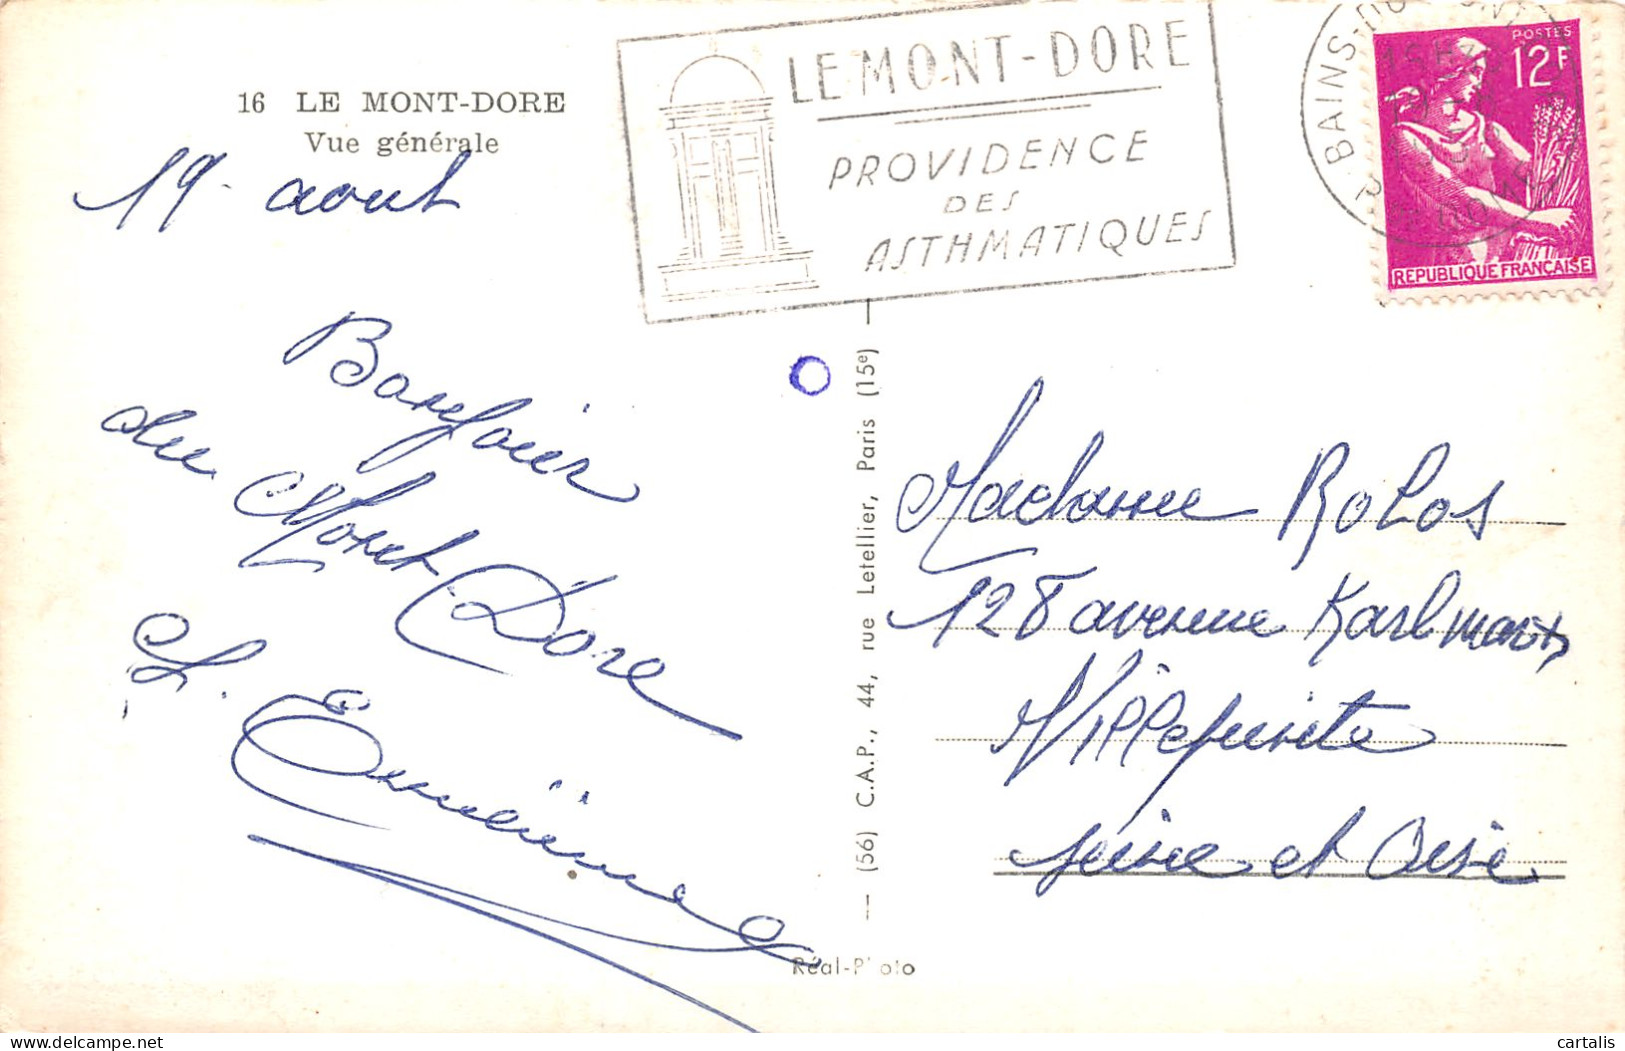 16 LE MONT-DORE
Vue générale
LE MONT-DORE
PROVIDENCE
DES
ASTHMATIQUES
BAINS-DU-MONT
POSTES
12F
REPUBLIQUE FRANÇAISE
19 août
Bonjour
du Mont
Dore
(56) C.A.P., 44, rue Letellier, Paris (15e)
Réal-Photo
Madame Rolos
128 avenue Karl marx
Villejuif
seine et Oise
cartalis